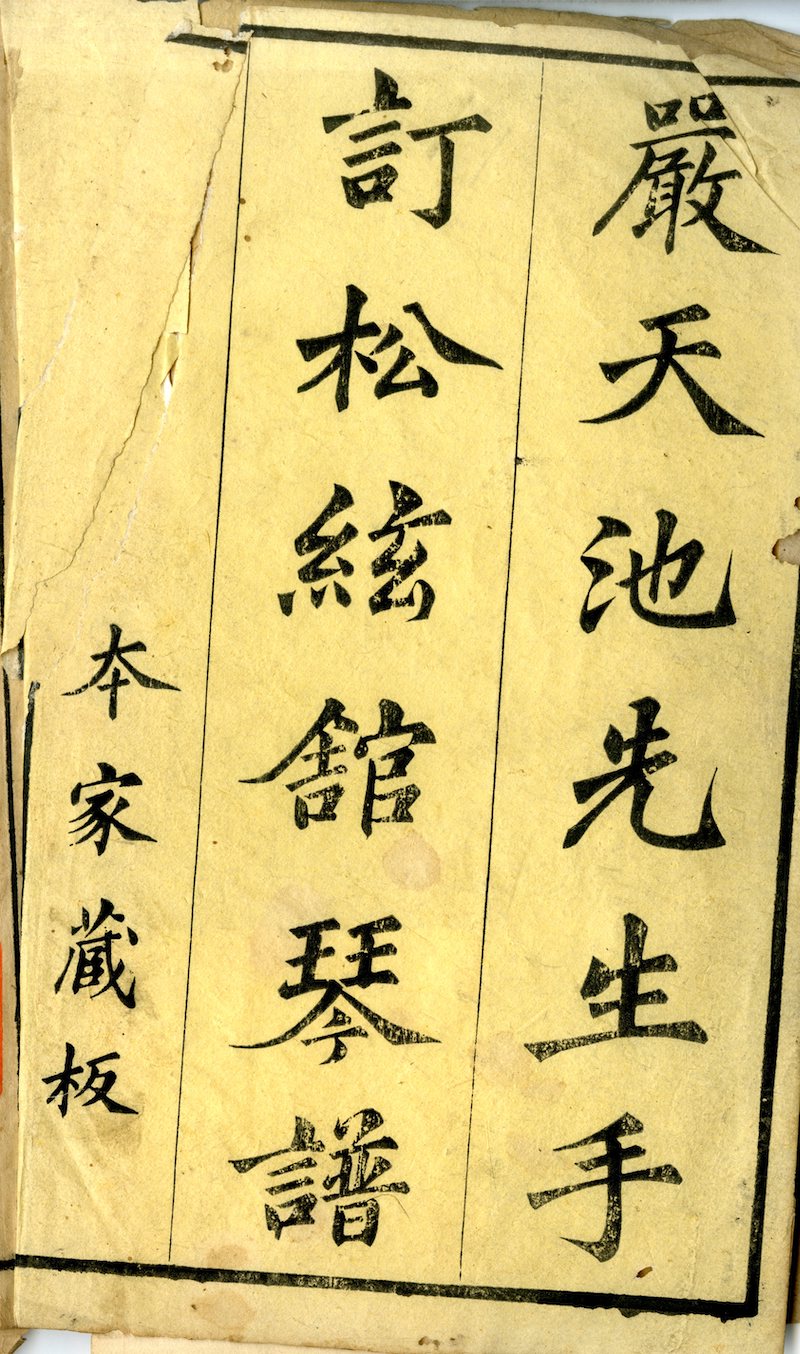 嚴天池先生手
訂松絃舘琴譜
本家藏板